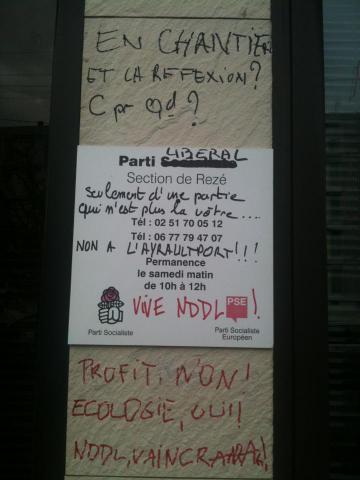 EN CHANTIER
ET LA REFEXION?
C pr qd?
LIBERAL
Parti Socialiste
Section de Rezé
seulement d'une partie
qui n'est plus la vôtre....
Tél : 02 51 70 05 12
Tél : 06 77 79 47 07
NON A L'AYRAULTPORT!!!
Permanence
le samedi matin
de 10h à 12h
VIVE NDDL!
PSE
Parti Socialiste
Parti Socialiste
Européen
PROFIT, NON!
ECOLOGIE, OUI!
NDDL, VAINCRA